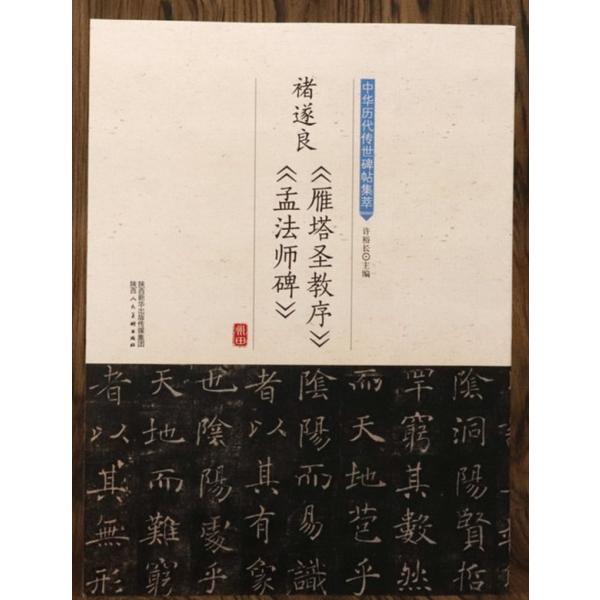 中华历代传世碑帖集萃
许裕长⊙主编
《雁塔圣教序》
褚遂良
《孟法师碑》
陕西新华出版传媒集团
陕西人民美术出版社
陰洞陽賢哲
罕窮其數然
而天地苞乎
陰陽而易識
者以其有象
也陰陽處乎
天地而難窮
者以其無形